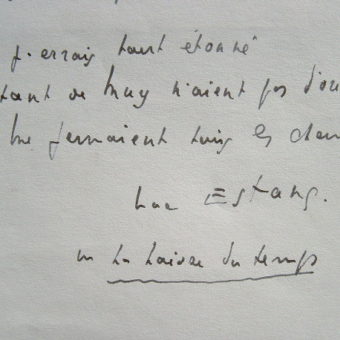 J'errais tant étonné
tant de murs n'aient pas d'ou
me fermaient tous les chem
Luc Estang.
in La laisse du temps